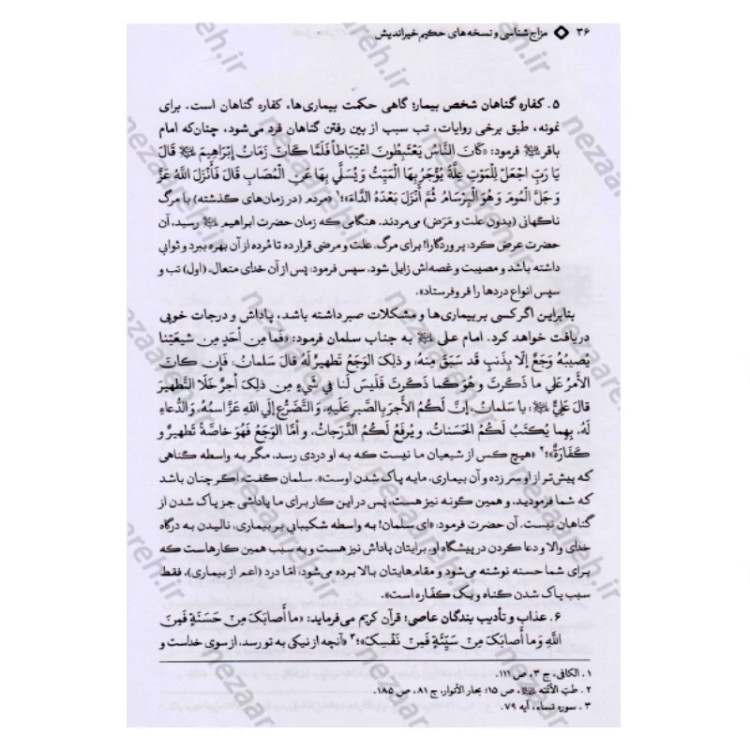 ۳۶ ◊ مزاج‌شناسی و نسخه‌های حکیم خیراندیش
۵. کفاره گناهان شخص بیمار؛ گاهی حکمت بیماری‌ها، کفاره گناهان است. برای
نمونه، طبق برخی روایات، تب سبب از بین رفتن گناهان فرد می‌شود، چنان‌که امام
باقر فرمود: «كَانَ النَّاسُ يَعْتَبِطُونَ اعْتِبَاطاً فَلَمَّا كَانَ زَمَانُ إِبْرَاهِيمَ قَالَ
يَا رَبِّ اجْعَلْ لِلْمَوْتِ عِلَّةً يُؤْجَرُ بِهَا الْمَيِّتُ وَ يُسَلَّى بِهَا عَنِ الْمُصَابِ قَالَ فَأَنْزَلَ اللَّهُ عَزَّ
وَ جَلَّ الْمُومَ وَ هُوَ الْبِرْسَامُ ثُمَّ أَنْزَلَ بَعْدَهُ الدَّاءَ»؛۱ «مردم (در زمان‌های گذشته) با مرگ
ناگهانی (بدون علت و مَرَض) می‌مردند. هنگامی که زمان حضرت ابراهیم رسید، آن
حضرت عرض کرد: پروردگارا! برای مرگ، علت و مرضی قرار ده تا مُرده از آن بهره ببرد و ثوابی
داشته باشد و مصیبت و غصه‌اش زایل شود. سپس فرمود: پس از آن خدای متعال، (اول) تب و
سپس انواع دردها را فرو فرستاد».
بنابراین اگر کسی بر بیماری‌ها و مشکلات صبر داشته باشد، پاداش و درجات خوبی
دریافت خواهد کرد. امام علی به جناب سلمان فرمود: «فَما مِن أحَدٍ مِن شيعَتِنا
يُصيبُهُ وَجَعٌ إلّا بِذَنبٍ قَد سَبَقَ مِنهُ، و ذلِكَ الوَجَعُ تَطهيرٌ لَهُ قالَ سَلمانُ: فَإن كانَ
الأَمرُ عَلى ما ذَكَرتَ و هُوَ كَما ذَكَرتَ فَلَيسَ لَنا في شَيءٍ مِن ذلِكَ أجرٌ خَلَا التَّطهيرَ
قالَ عَلِيٌّ: يا سَلمانُ، إنَّ لَكُمُ الأَجرَ بِالصَّبرِ عَلَيهِ، وَ التَّضَرُّعِ إلَى اللهِ عَزَّ اسمُهُ، وَ الدُّعاءِ
لَهُ، بِهِما يُكتَبُ لَكُمُ الحَسَناتُ، و يُرفَعُ لَكُمُ الدَّرَجاتُ، و أمَّا الوَجَعُ فَهُوَ خاصَّةً تَطهيرٌ و
كَفّارَةٌ»؛۲ «هیچ کس از شیعیان ما نیست که به او دردی رسد، مگر به واسطه گناهی
که پیش‌تر از او سر زده و آن بیماری، مایه پاک شدن اوست». سلمان گفت: اگر چنان باشد
که شما فرمودید، و همین گونه نیز هست، پس در این کار برای ما پاداشی جز پاک شدن از
گناهان نیست. آن حضرت فرمود: «ای سلمان! به واسطه شکیبایی بر بیماری، نالیدن به درگاه
خدای والا و دعا کردن در پیشگاه او، برایتان پاداش نیز هست و به سبب همین کارهاست که
برای شما حسنه نوشته می‌شود و مقام‌هایتان بالا برده می‌شود؛ امّا درد (اعم از بیماری)، فقط
سبب پاک شدن گناه و یک کفّاره است».
۶. عذاب و تأدیب بندگان عاصی؛ قرآن کریم می‌فرماید: «ما أَصابَكَ مِنْ حَسَنَةٍ فَمِنَ
اللَّهِ وَ ما أَصابَكَ مِنْ سَيِّئَةٍ فَمِنْ نَفْسِكَ»؛۳ «آنچه از نیکی به تو رسد، از سوی خداست و
۱. الکافی، ج ۳، ص ۱۱۱.
۲. طبّ الأئمّه، ص ۱۵؛ بحار الأنوار، ج ۸۱، ص ۱۸۵.
۳. سوره نساء، آیه ۷۹.
nezaareh.ir